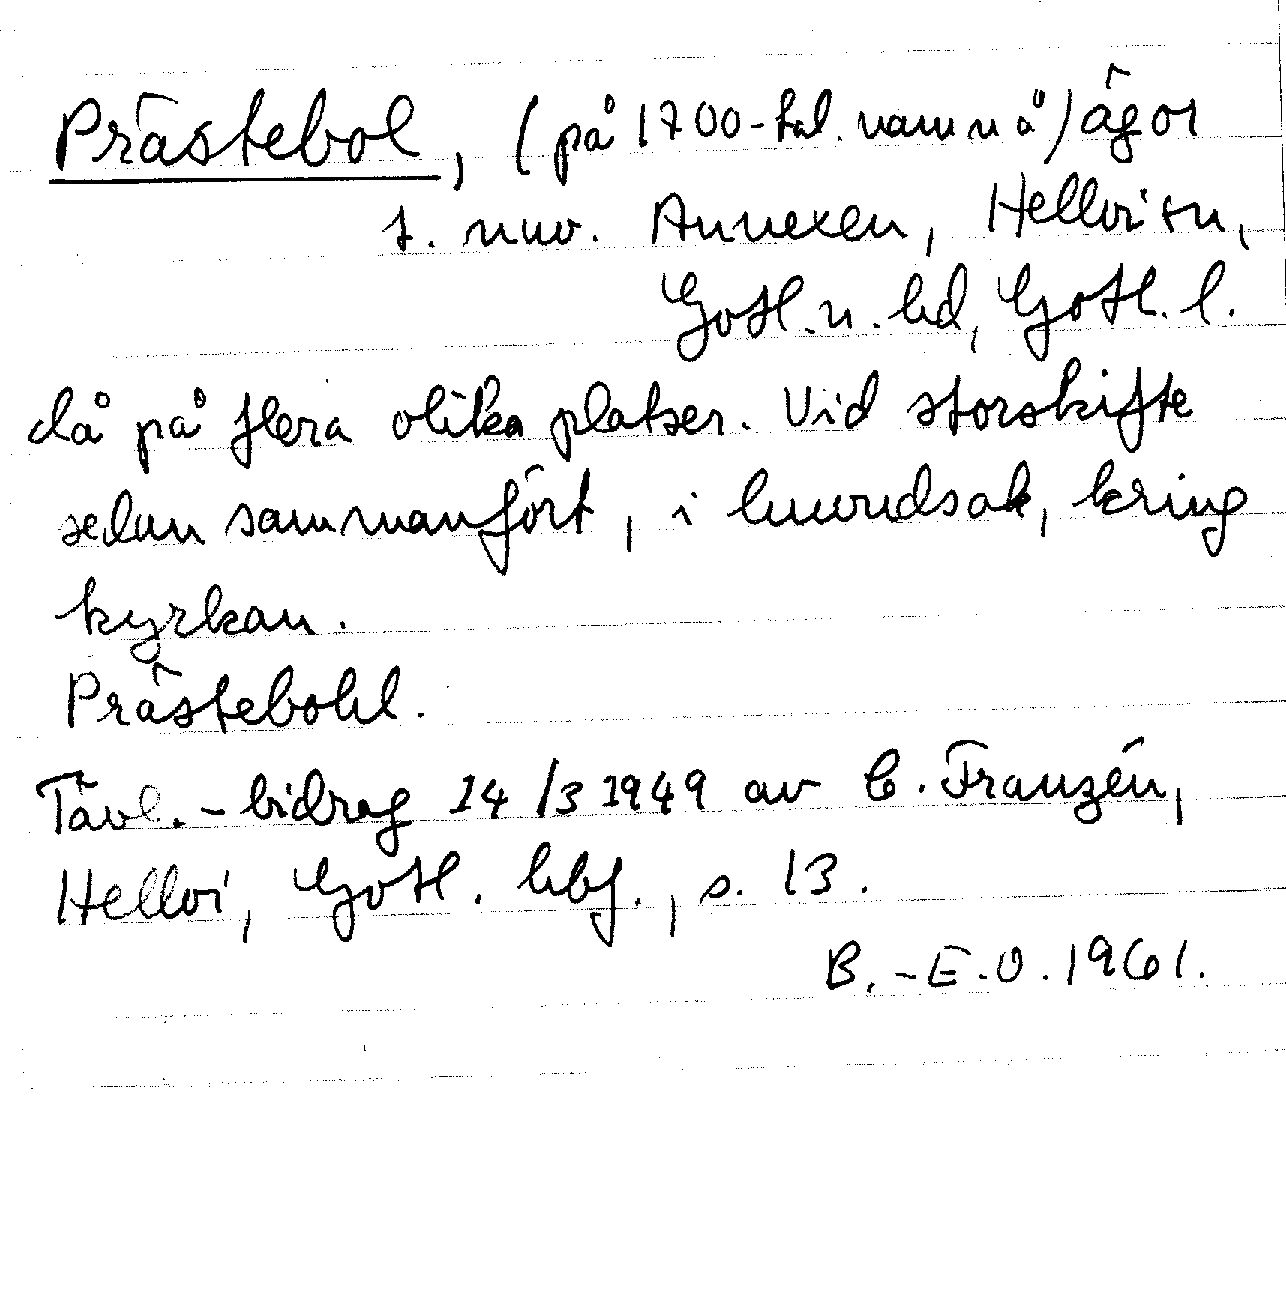 Prästebol, (på 1700-tal. namn å) ägor
t. nuv. Annexen, Hellvi sn,
Gotl. n. hd, Gotl. l.
då på flera olika platser. Vid storskifte
sedan sammanfört, i huvudsak, kring
kyrkan.
Prästebohl.
Tävl.-bidrag 14/3 1949 av C. Franzén,
Hellvi, Gotl. hbf., s. 13.
B.-E.O. 1961.